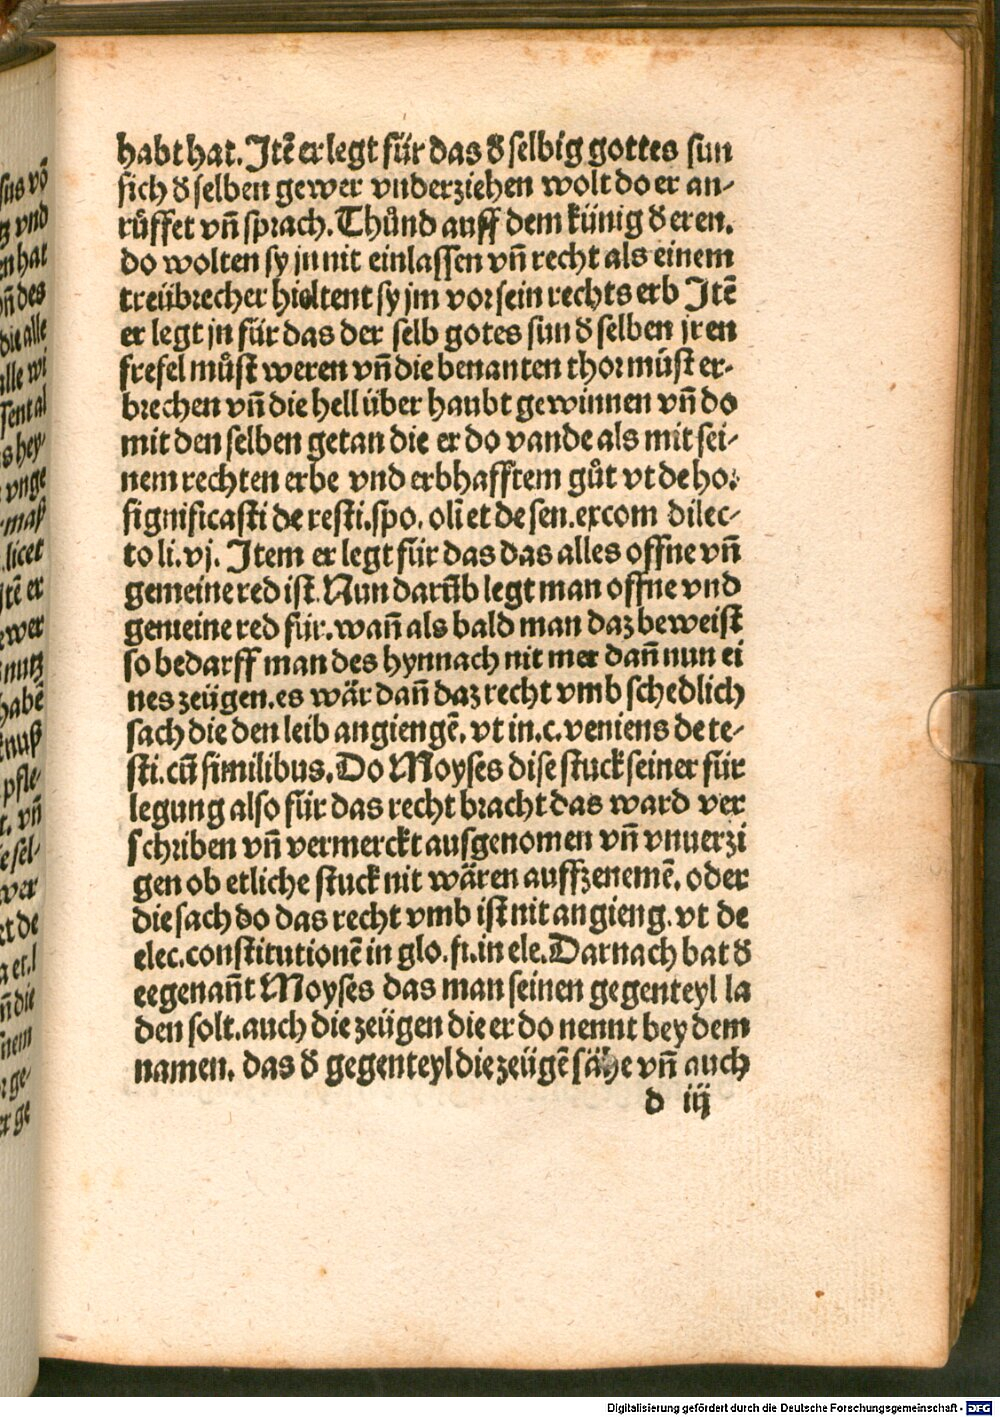 habt hat. Jtē er legt für das d̕ selbig gottes sun
sich d̕ selben gewer vnderziehen wolt do er an-
růffet vn̄ sprach. Thůnd auff dem künig d̕ eren.
do wolten sy jn nit einlassen vn̄ recht als einem
treübrecher hieltent sy jm vor sein rechts erb Jtē
er legt jn für das der selb gotes sun d̕ selben jr en
frefel můst weren vn̄ die benanten thor můst er-
brechen vn̄ die hell über haubt gewinnen vn̄ do
mit den selben getan die er do vande als mit sei-
nem rechten erbe vnd erbhafftem gůt vt de ho.
significasti de resti. spo. oli et de sen. excom dilec-
to li. vj. Jtem er legt für das das alles offne vn̄
gemeine red ist. Nun darūb legt man offne vnd
gemeine red für. wan̄ als bald man daz beweist
so bedarff man des hynnach nit mer dan̄ nun ei
nes zeügen. es wär dan̄ daz recht vmb schedlich
sach die den leib angiengē. vt in. c. veniens de te-
sti. cū similibus. Do Moyses dise stuck seiner für
legung also für das recht bracht das ward ver
schriben vn̄ vermerckt ausgenomen vn̄ vnuerzi
gen ob etliche stuck nit wären auffzenemē. oder
die sach do das recht vmb ist nit angieng. vt de
elec. constitutionē in glo. fi. in ele. Darnach bat d̕
eegenan̄t Moyses das man seinen gegenteyl la
den solt. auch die zeügen die er do nennt bey dem
namen. das d̕ gegenteyl die zeügē sähe vn̄ auch
d iij
Digitalisierung gefördert durch die Deutsche Forschungsgemeinschaft - DFG